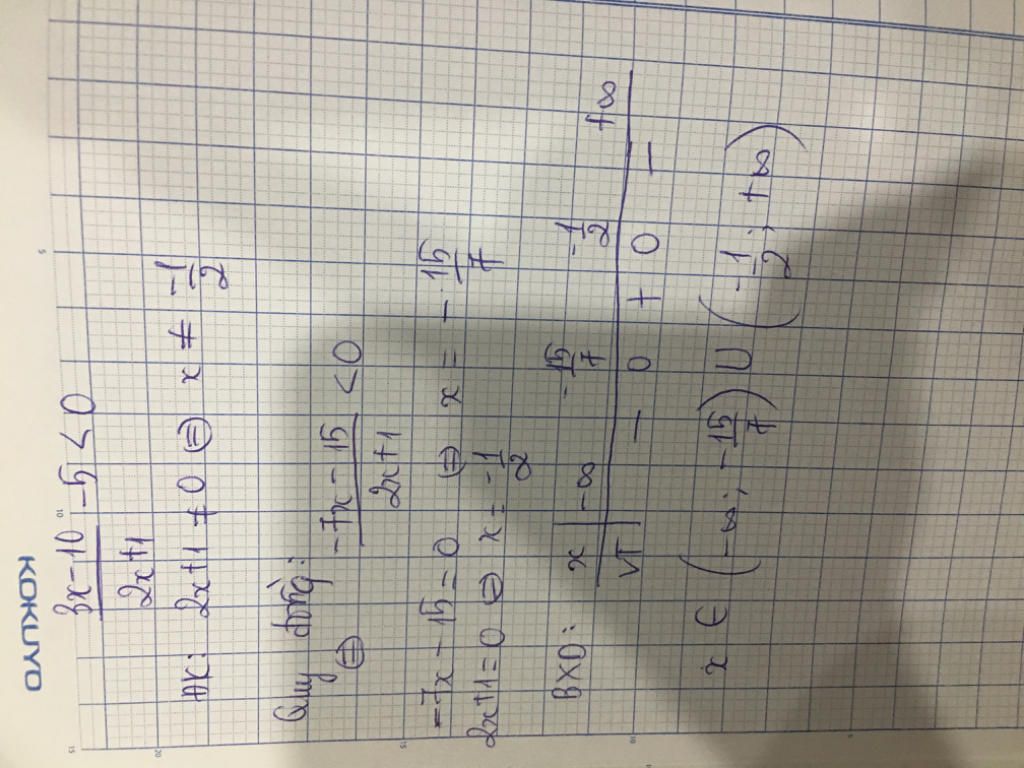 KOKUYO
(3x-10)/(2x+1) - 5 < 0
ĐK: 2x+1 ≠ 0 ⇔ x ≠ -1/2
Quy đồng:
⇔ (-7x-15)/(2x+1) < 0
-7x-15=0 ⇔ x = -15/7
2x+1=0 ⇔ x = -1/2
BXD: x | -∞ -15/7 -1/2 +∞
VT | - 0 + 0 -
x ∈ (-∞; -15/7) U (-1/2; +∞)
5
10
15
20
15
10
5